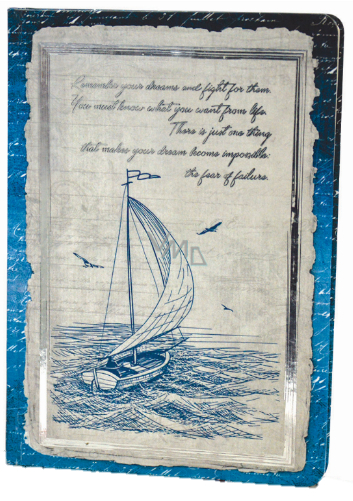 Remember your dreams and fight for them.
You must know what you want from life.
There is just one thing
that makes your dream become impossible:
the fear of failure.